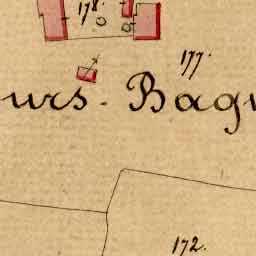 178.
177.
urs. Bagu
172.